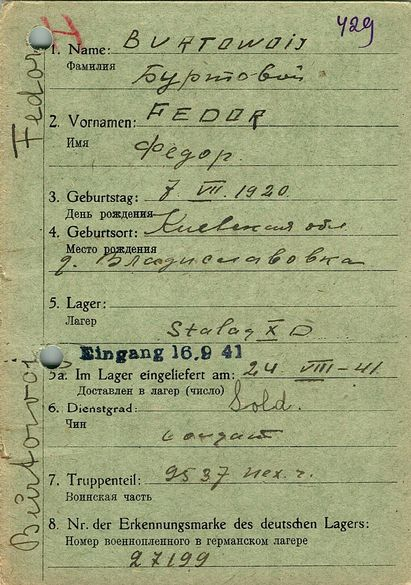 429
1. Name: BURTOWOIJ
Фамилия
Буртовой
2. Vornamen: FEDOR
Имя
Федор.
3. Geburtstag: 7 VII. 1920.
День рождения
4. Geburtsort: Киевская обл
Место рождения
д. Владиславовка
5. Lager:
Лагер
Stalag X D
Eingang 16.9 41
5a. Im Lager eingeliefert am: 24 VIII-41.
Доставлен в лагер (число)
6. Dienstgrad: Sold.
Чин
солдат
7. Truppenteil: 9537 пех. ч.
Воинская часть
8. Nr. der Erkennungsmarke des deutschen Lagers:
Номер военнопленного в германском лагере
27199
Burtowoi Fedor